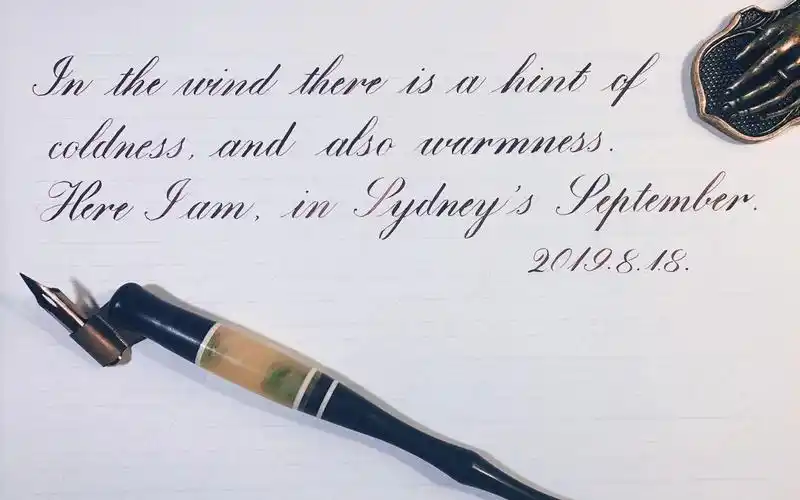 In the wind there is a hint of
coldness, and also warmness.
Here I am, in Sydney's September.
2019.8.18.